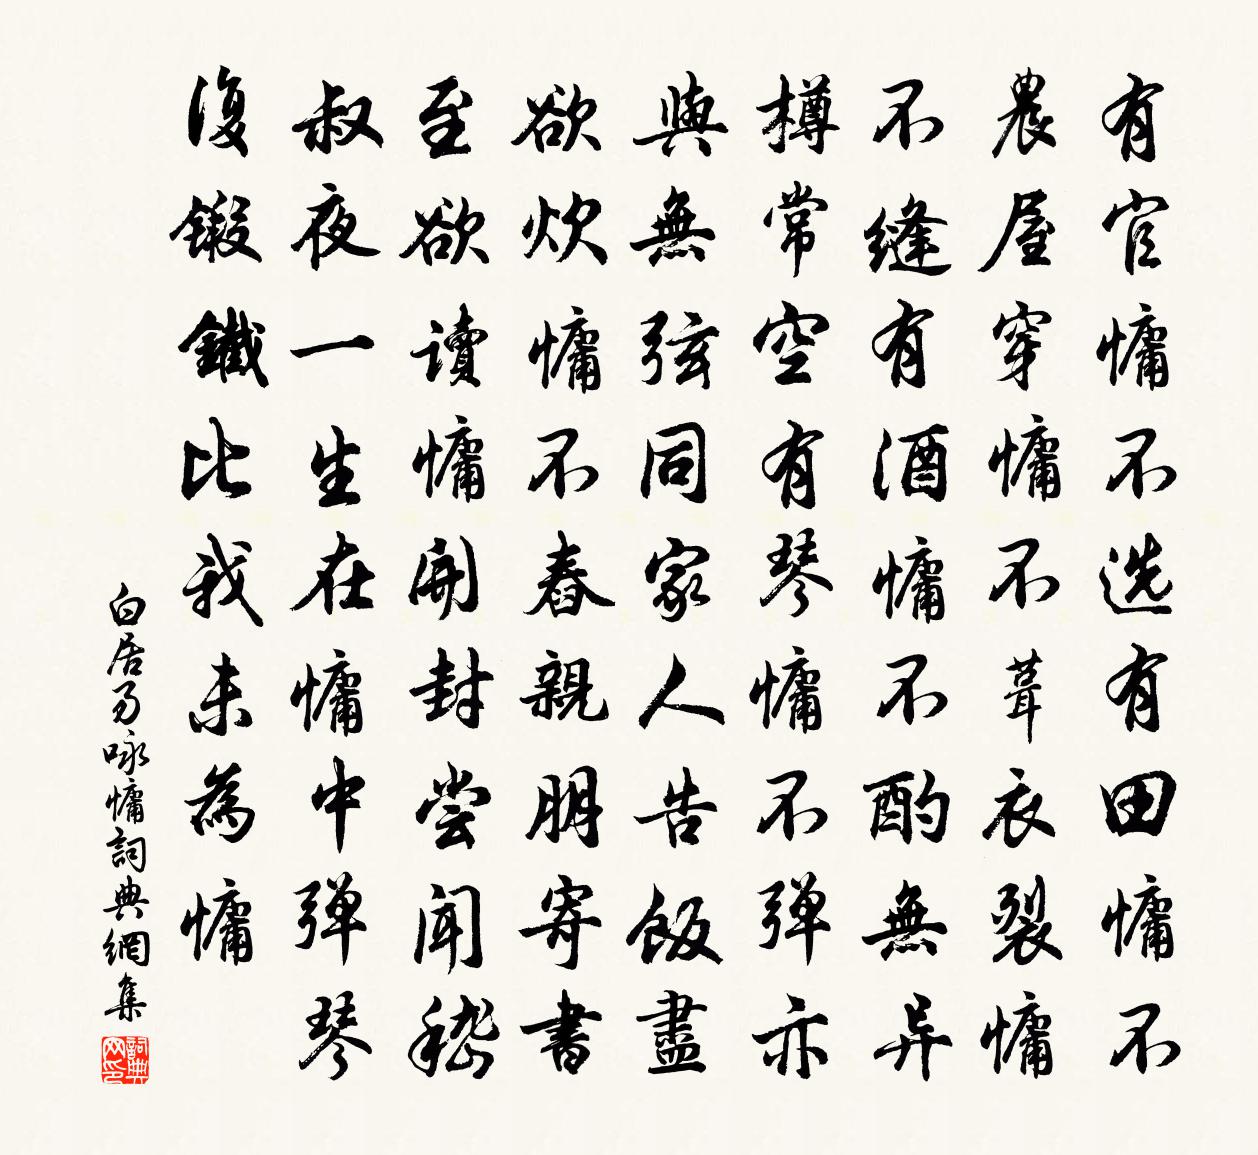 有官慵不选有田慵不
農屋穿慵不葺衣裂慵
不縫有酒慵不酌無异
樽常空有琴慵不弹亦
與無弦同家人告飯盡
欲炊慵不舂親朋寄書
至欲讀慵開封尝聞嵇
叔夜一生在慵中弹琴
復鍛鐵比我未為慵
白居易咏慵詞典網集
詞典网印